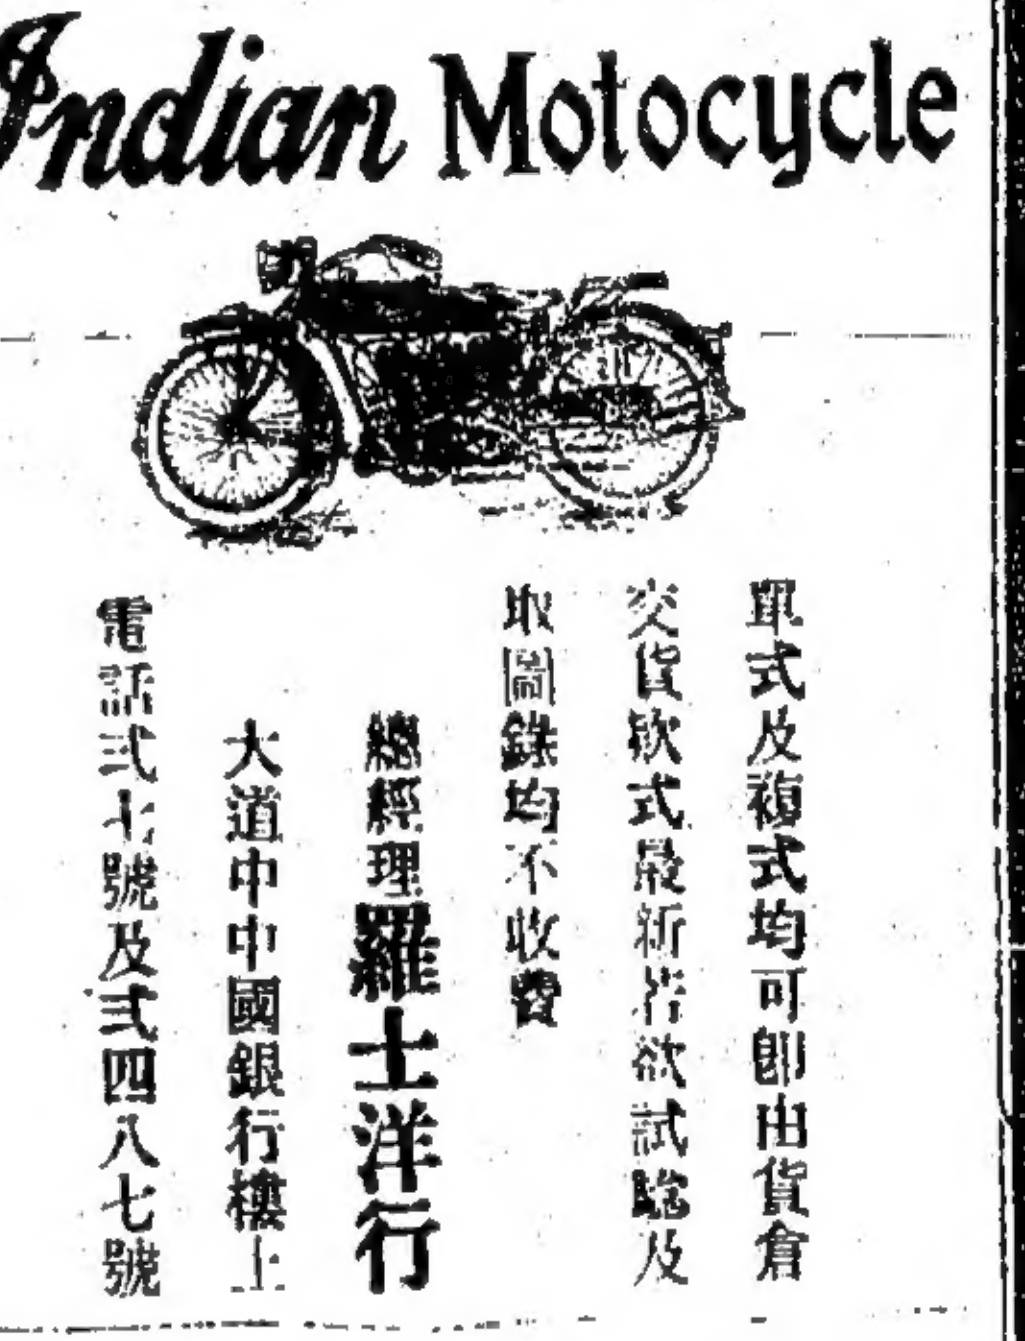 Indian Motocycle
單式及複式均可即由貨倉
交貨欵式最新若欲試驗及
取圖錄均不收費
總經理羅士洋行
大道中中國銀行樓上
電話弍七號及弍四八七號